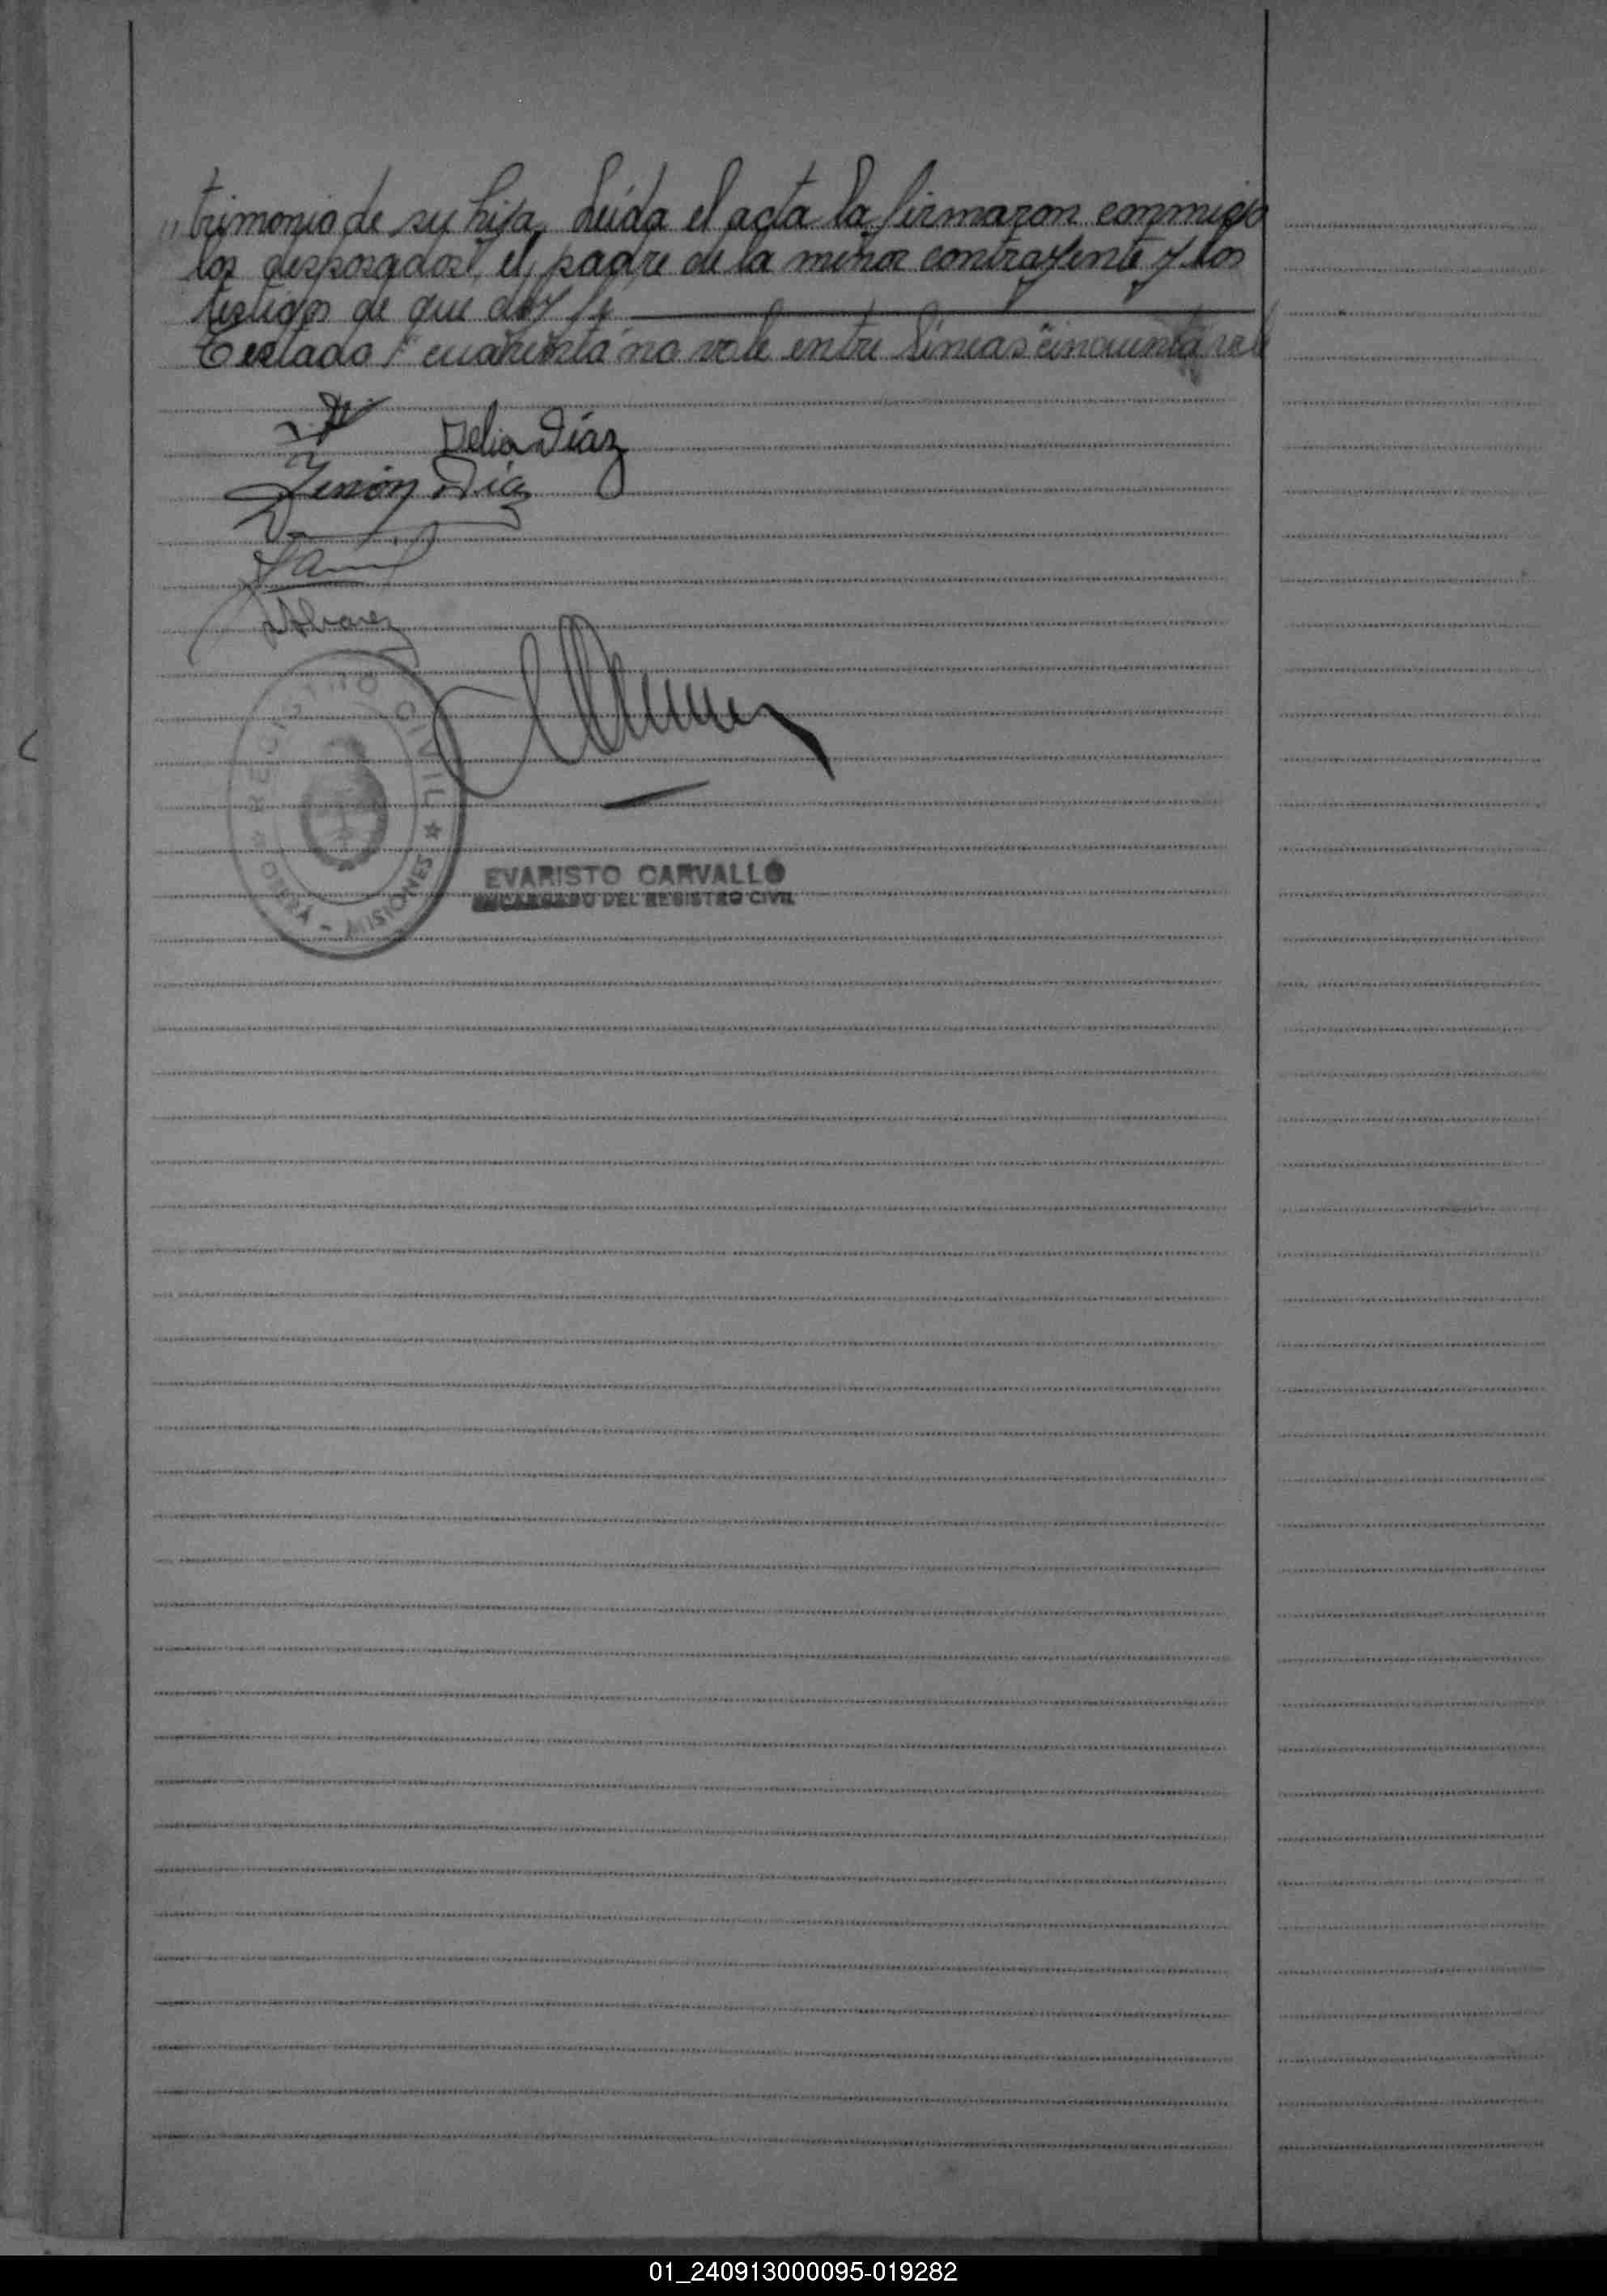 "trimonio de su hija. Leida el acta la firmaron conmigo
los desposados, el padre de la menor contrayente y los
testigos de que doy fe
Testado "cuarenta" no vale entre lineas "cincuenta" vale
Delia Díaz
Zenón Díaz
Alvarez
REGISTRO CIVIL
OBERA - MISIONES
EVARISTO CARVALLO
ENCARGADO DEL REGISTRO CIVIL
01_240913000095-019282